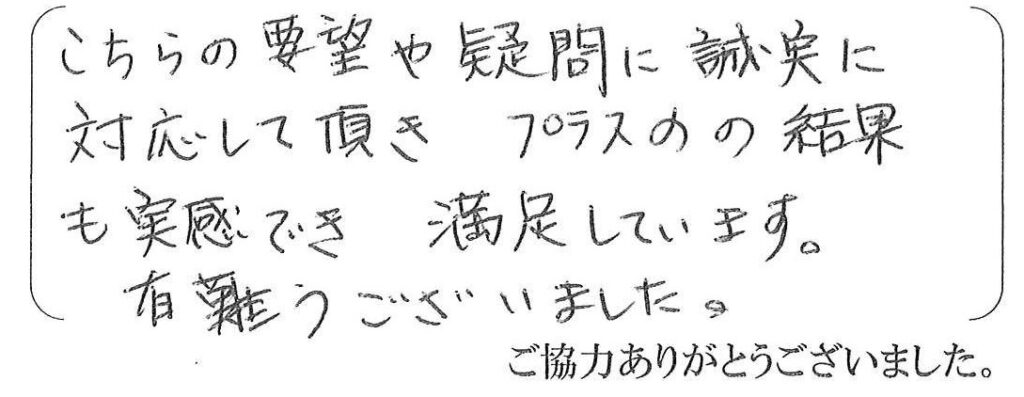 こちらの要望や疑問に誠実に
対応して頂き プラスのの結果
も実感でき 満足しています。
有難うございました。
ご協力ありがとうございました。